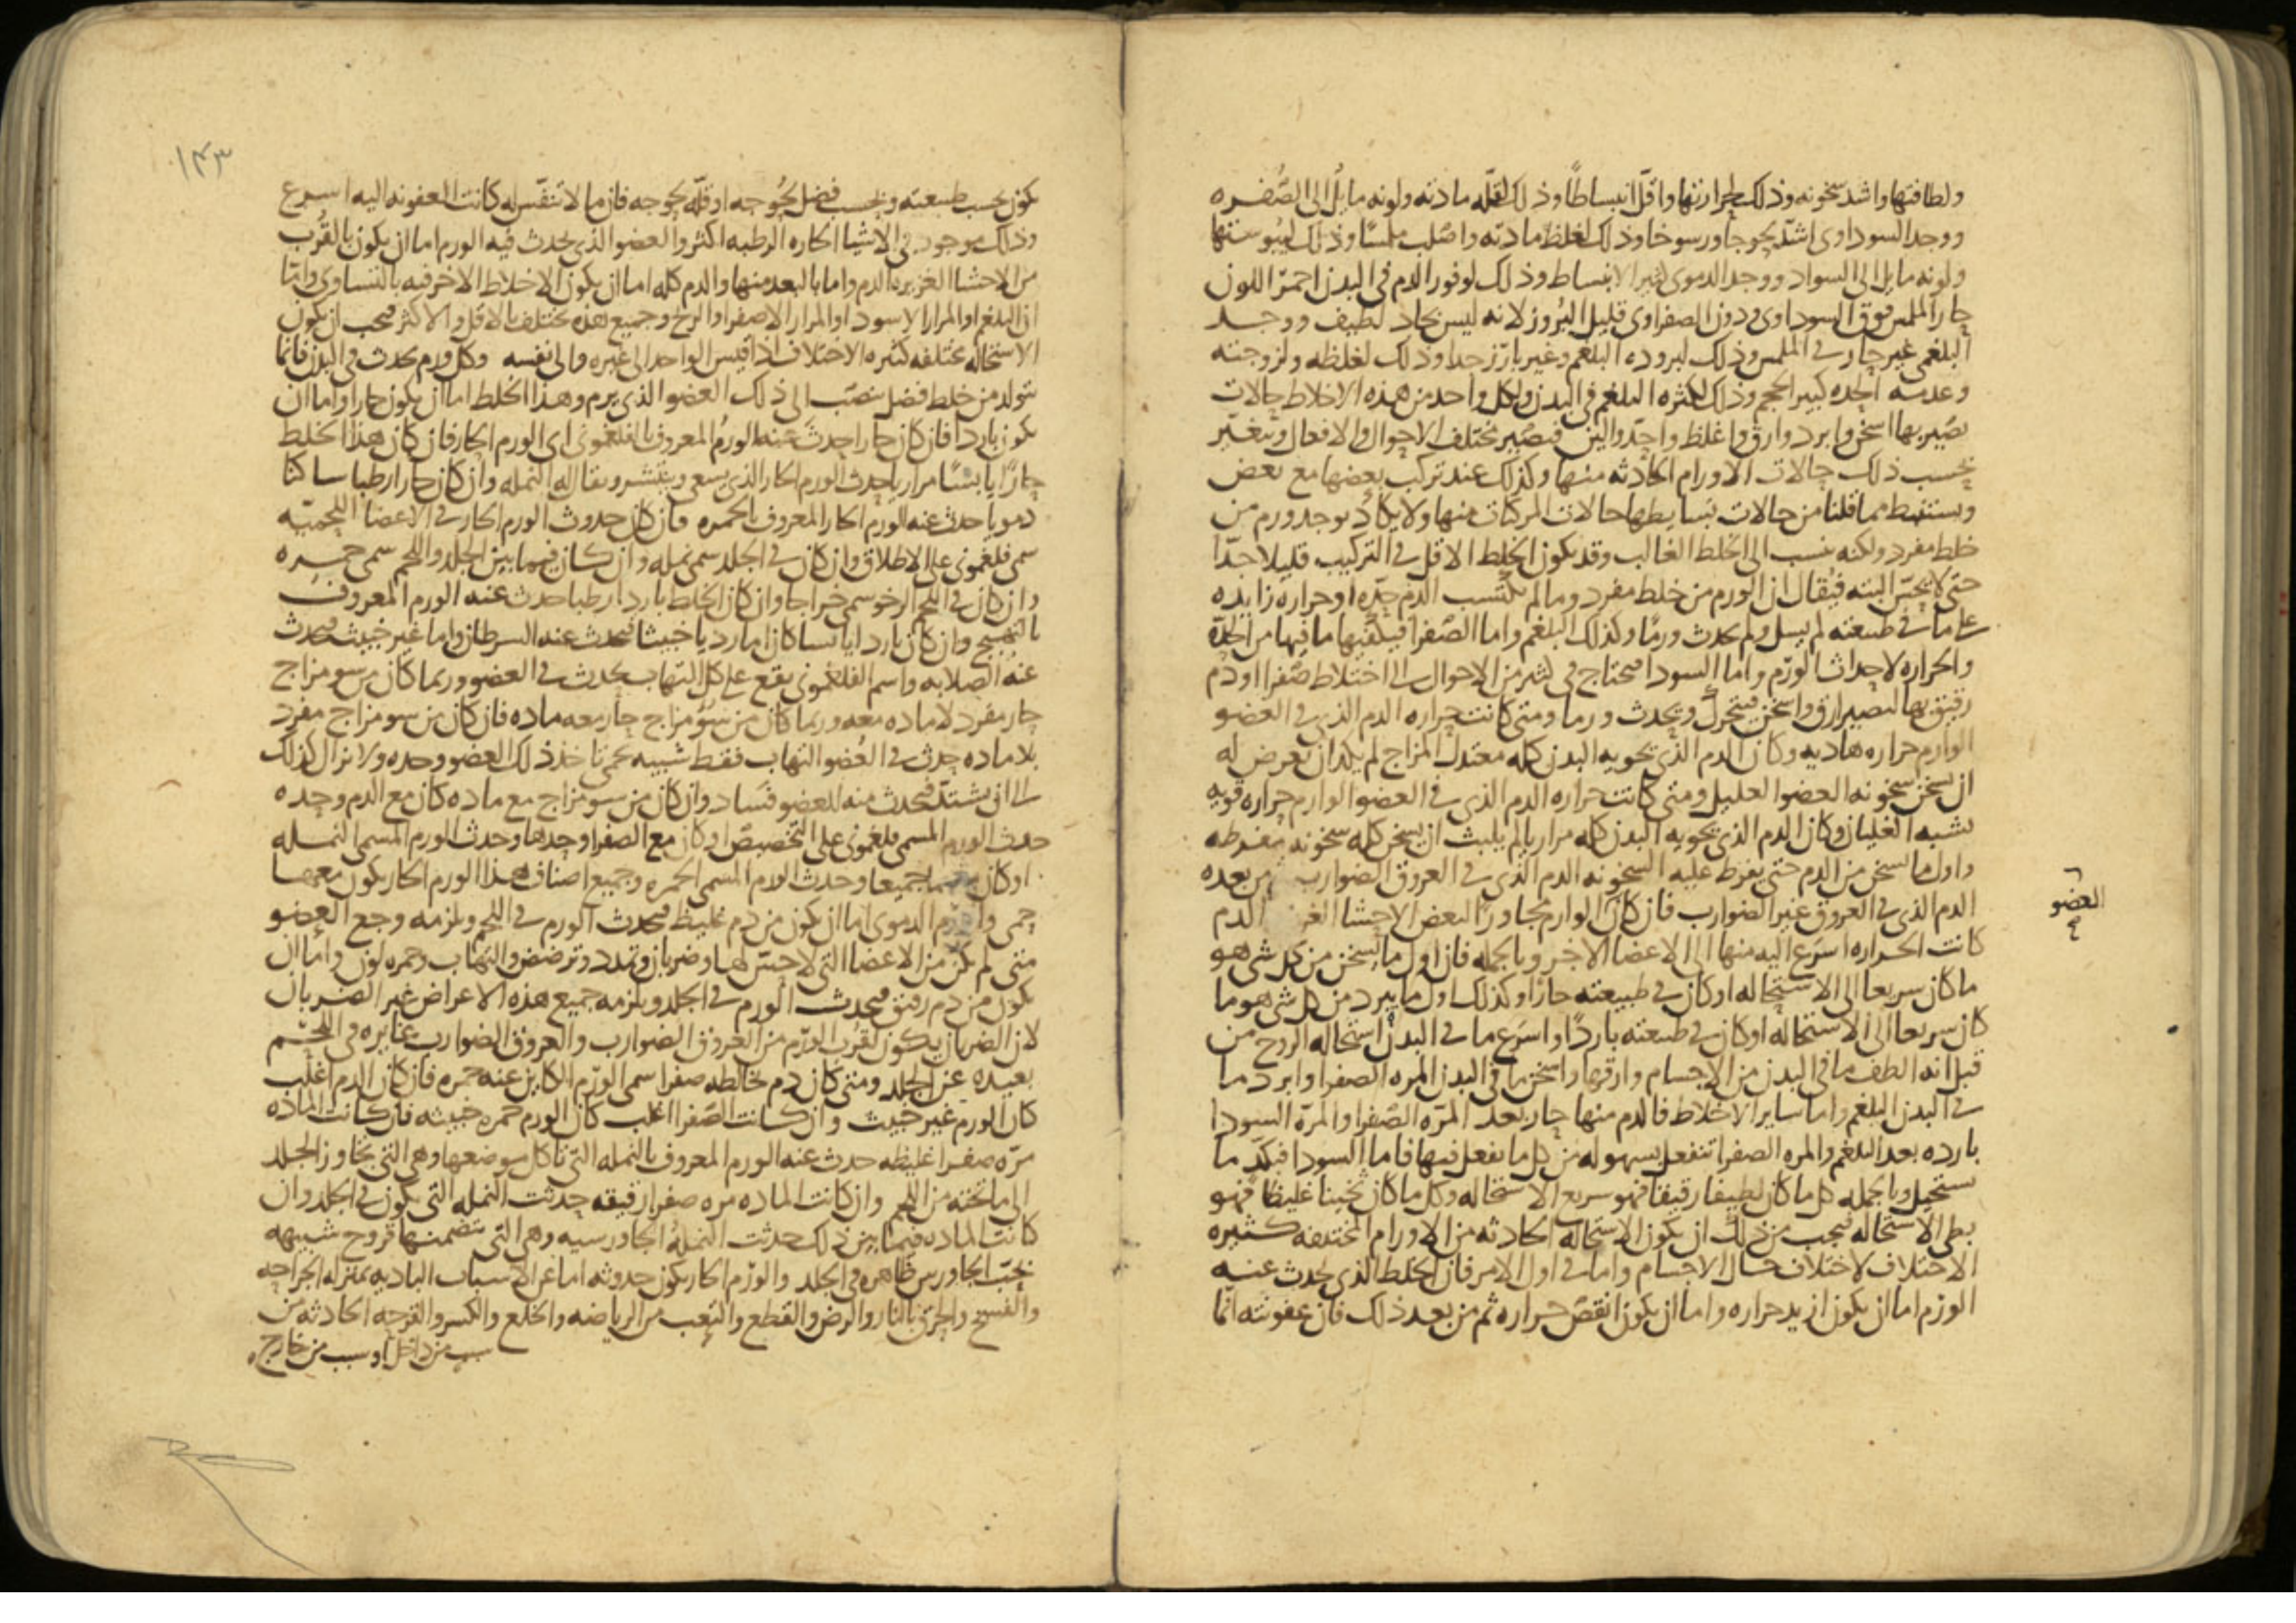 ولطافتها واشد سخونه وذلك لحرارتها واقل انبساطًا وذلك لقله مادته ولونه مايل الى الصفره
ووجد السوداوى اشد لحوجا ورسوخا وذلك لغلظ مادته واصلب ملمسًا وذلك ليبوستها
ولونه مايل الى السواد ووجد الدموى كثير الانبساط وذلك لوفور الدم فى البدن احمر اللون
حار الملمس فوق السوداوى ودون الصفراوى قليل البروز لانه ليس بحاد لطيف ووجد
البلغمى غير حار فى الملمس وذلك لبروده البلغم وغير بارز جدا وذلك لغلظه ولزوجته
وعدمه الحده كبير الحجم وذلك لكثره البلغم فى البدن ولكل واحد من هذه الاخلاط حالات
يصير بها اسخن وابرد وارق واغلظ واحد والين فيصير مختلف الاحوال والافعال ويتغير
بحسب ذلك حالات الاورام الحادثه منها وكذلك عند تركب بعضها مع بعض
ويستنبط مما قلنا من حالات بسايطها حالات المركبات منها ولا يكاد يوجد ورم من
خلط مفرد ولكنه ينسب الى الخلط الغالب وقد يكون الخلط الاقل فى التركيب قليلا جدا
حتى لا يحس البته فيقال ان الورم من خلط مفرد وما لم يكتسب الدم حده او حراره زايده
على ما فى طبيعته لم يسل ولم يحدث ورمًا وكذلك البلغم واما الصفرا فيكفيها ما فيها من الحده
والحراره لاحداث الورم واما السودا فتحتاج فى كثير من الاحوال الى اختلاط صفرا او دم
رقيق بها لتصير ارق واسخن فيتحرك ويحدث ورما ومتى كانت حراره الدم الذى فى العضو
الوارم حراره هاديه وكان الدم الذى يحويه البدن كله معتدل المزاج لم يكد ان يعرض له
ان يسخن سخونه العضو العليل ومتى كانت حراره الدم الذى فى العضو الوارم حراره قويه
تشبه الغليان وكان الدم الذى يحويه البدن كله مراريا لم يلبث ان يسخن كله سخونه مفرطه
واول ما يسخن من الدم حتى يفرط عليه السخونه الدم الذى فى العروق الضوارب ثم من بعده
الدم الذى فى العروق غير الضوارب فان كان الوارم مجاورًا لبعض الاحشا الدم
العضو
كانت الحراره اسرع اليه منها الى الاعضا الاخر وبالجمله فان اول ما يسخن من كل شى هو
ما كان سريعا الى الاستحاله او كان فى طبيعته حارًا وكذلك اول ما يبرد من كل شى هو ما
كان سريعا الى الاستحاله او كان فى طبيعته باردًا واسرع ما فى البدن استحاله الروح من
قبل انه الطف ما فى البدن من الاجسام وارقها واسخن ما فى البدن المره الصفرا وابرد ما
فى البدن البلغم واما ساير الاخلاط فالدم منها حار بعد المره الصفرا والمره السودا
بارده بعد البلغم والمره الصفرا تنفعل بسهوله من كل ما يفعل فيها فاما السودا فبكد ما
تستحيل وبالجمله كل ما كان لطيفا رقيقا فهو سريع الاستحاله وكل ما كان ثخينا غليظًا فهو
بطى الاستحاله فيجب من ذلك ان يكون الاستحاله الحادثه من الاورام المختلفه كثيره
الاختلاف لاختلاف حال الاجسام واما فى اول الامر فان الخلط الذى يحدث عنه
الورم اما ان يكون ازيد حراره واما ان يكون انقص حراره ثم من بعد ذلك فان عفونته انما
١٤٣
يكون بحسب طبيعته وبحسب فضل لحوجه او قله لحوجه فان ما لا تنفس له كانت العفونه اليه اسرع
وذلك موجود فى الاشيا الحاره الرطبه اكثر والعضو الذى يحدث فيه الورم اما ان يكون بالقرب
من الاحشا الغزيره الدم واما بالبعد منها والدم كله اما ان يكون الاخلاط الاخر فيه بالتساوى واما
ان البلغم او المرار الاسود او المرار الاصفر او الريح وجميع هذه تختلف بالاقل والاكثر فيجب ان يكون
الاستحاله مختلفه كثيره الاختلاف اذا قيس الواحد الى غيره والى نفسه وكل ورم يحدث فى البدن فانما
يتولد من خلط فضل ينصب الى ذلك العضو الذى يرم وهذا الخلط اما ان يكون حارا واما ان
يكون باردا فان كان حارا حدث عنه الورم المعروف بالفلغمونى اى الورم الحار فان كان هذا الخلط
حارًا يابسًا مراريا حدث الورم الحار الذى يسعى وينتشر ويقال له النمله وان كان حارا رطبا ساكنا
دمويا حدث عنه الورم الحار المعروف بالحمره فان كل حدوث الورم الحار فى الاعضا اللحميه
سمى فلغمونى على الاطلاق وان كان فى الجلد سمى نمله وان كان فيما بين الجلد واللحم سمى حمره
وان كان فى اللحم الرخو سمى خراجا وان كان الخلط باردا رطبا حدث عنه الورم المعروف
بالتهبج وان كان باردا يابسا كان اما رديا خبيثا فيحدث عنه السرطان واما غير خبيث فيحدث
عنه الصلابه واسم الفلغمونى يقع على كل التهاب يحدث فى العضو وربما كان من سو مزاج
حار مفرد لا ماده معه وربما كان من سوء مزاج حار معه ماده فان كان من سو مزاج مفرد
بلا ماده حدث فى العضو التهاب فقط شبيه بحمى تاخذ ذلك العضو وحده ولا يزال كذلك
الى ان يشتد فيحدث منه للعضو فساد وان كان من سو مزاج مع ماده كان مع الدم وحده
حدث الورم المسمى فلغمونى على التخصيص او كان مع الصفرا وحدها وحدث الورم المسمى النمله
او كان جميعا وحدث الورم المسمى الحمره وجميع اصناف هذا الورم الحار يكون معها
حمى والورم الدموى اما ان يكون من دم غليظ فيحدث الورم فى اللحم ويلزمه وجع العضو
متى لم يكن من الاعضا التى لا حس لها وضربان وتمدد وترضض والتهاب وحمره لون واما ان
يكون من دم رقيق فيحدث الورم فى الجلد ويلزمه جميع هذه الاعراض غير الضربان
لان الضربان يكون لقرب الورم من العروق الضوارب والعروق الضوارب غايره فى اللحم
بعيده عن الجلد ومتى كان دم يخالطه صفرا سمى الورم الكاين عنه حمره فان كان الدم اغلب
كان الورم غير خبيث وان كانت الصفرا اغلب كان الورم حمره خبيثه فان كانت الماده
مره صفرا غليظه حدث عنه الورم المعروف بالنمله التى تاكل موضعها وهى التى تجاوز الجلد
الى ما تحته من اللحم وان كانت الماده مره صفرا رقيقه حدثت النمله التى يكون فى الجلد وان
كانت الماده فيما بين ذلك حدثت النمله الجاورسيه وهى التى تتضمنها قروح شبيهه
بحب الجاورس ظاهره فى الجلد والورم الحار يكون حدوثه اما عن الاسباب الباديه بمنزله الجراحه
والفسخ والحرق بالنار والرض والقطع والتعب من الرياضه والخلع والكسر والقرحه الحادثه من
سبب من داخل او سبب من خارج